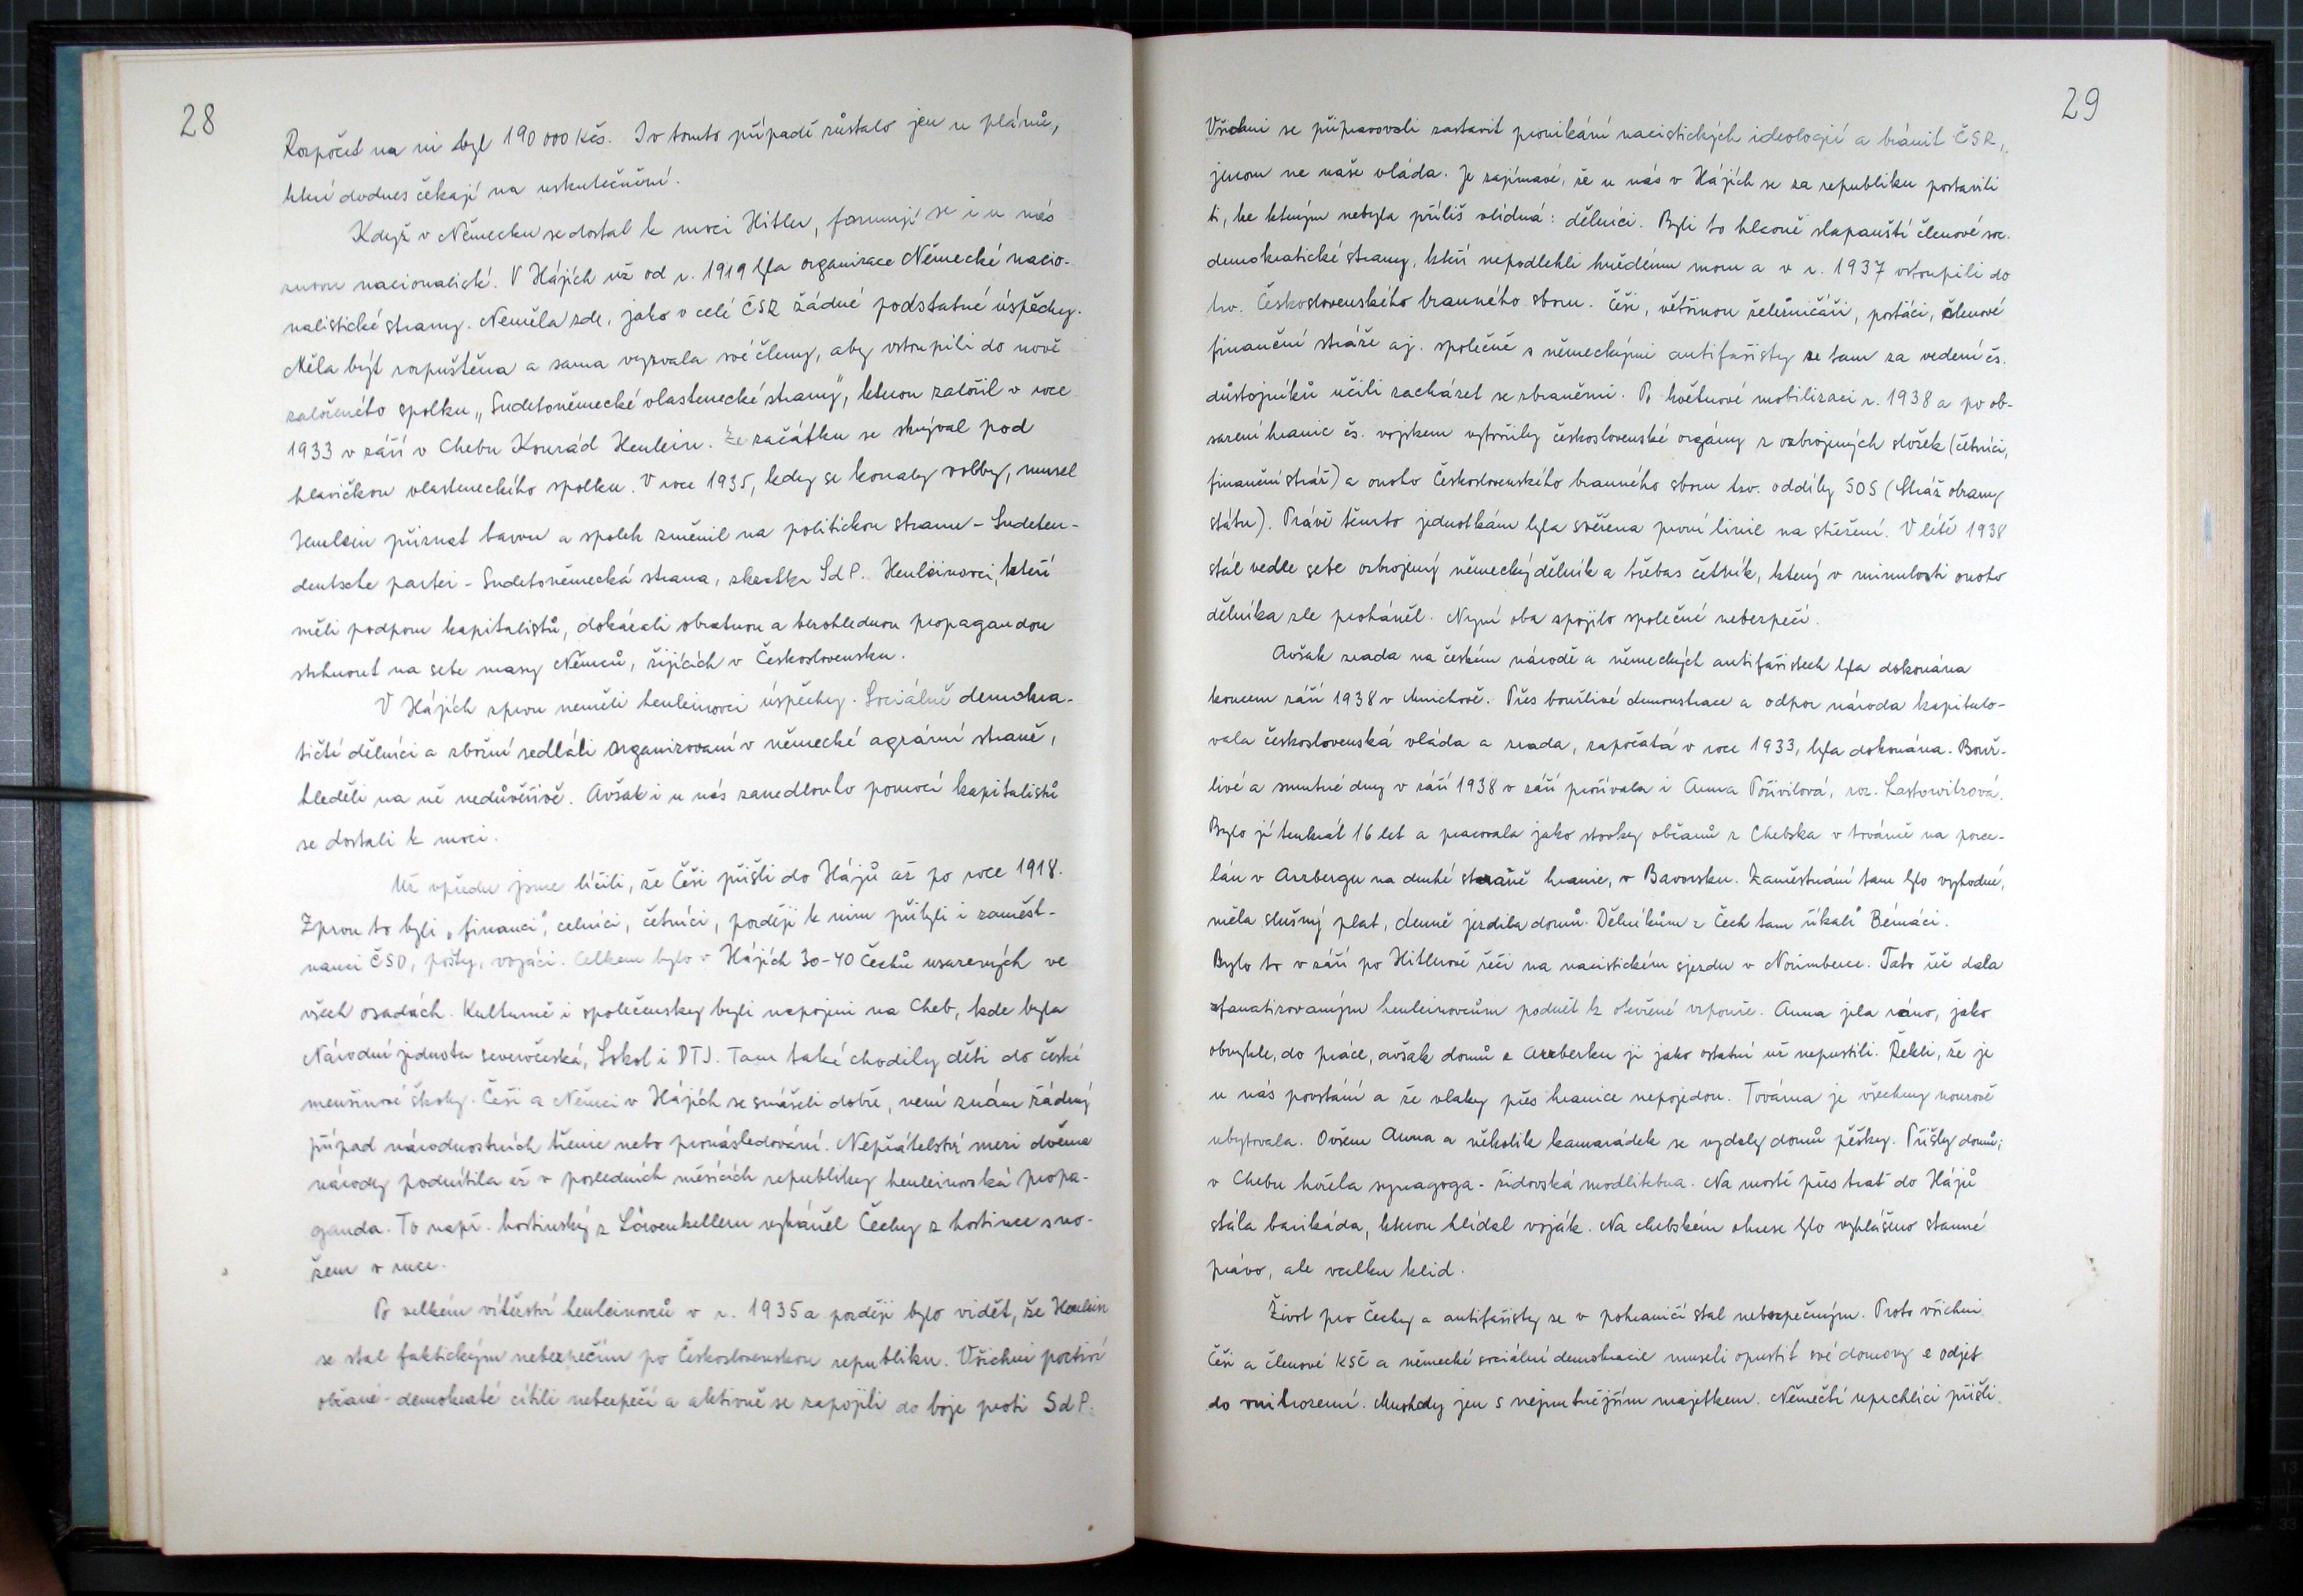 28
Rozpočet na ni byl 190 000 Kčs. I v tomto případě zůstalo jen u plánů,
které dodnes čekají na uskutečnění.
Když v Německu se dostal k moci Hitler, formují se i u nás
znovu nacionalisté. V Hájích už od r. 1919 byla organizace Německé nacio-
nalistické strany. Neměla zde, jako v celé ČSR žádné podstatné úspěchy.
Měla být rozpuštěna a sama vyzvala své členy, aby vstoupili do nově
založeného spolku „Sudetoněmecké vlastenecké strany", kterou založil v roce
1933 v září v Chebu Konrád Henlein. Ze začátku se skrýval pod
hlavičkou vlasteneckého spolku. V roce 1935, kdy se konaly volby, musel
Henlein přiznat barvu a spolek změnil na politickou stranu - Sudeten-
deutsche partei - Sudetoněmecká strana, zkratka SdP. Henleinovci, kteří
měli podporu kapitalistů, dokázali obratnou a bezohlednou propagandou
strhnout na sebe masy Němců, žijících v Československu.
V Hájích zprvu neměli henleinovci úspěchy. Sociálně demokra-
tičtí dělníci a zbožní sedláci organizovaní v německé agrární straně,
hleděli na ně nedůvěřivě. Avšak i u nás zanedlouho pomocí kapitalistů
se dostali k moci.
Už vpředu jsme líčili, že Češi přišli do Hájů až po roce 1918.
Zprvu to byli „financi", celníci, četníci, později k nim přibyli i zaměst-
nanci ČSD, pošty, vojáci. Celkem bylo v Hájích 30-40 Čechů usazených ve
všech osadách. Kulturně i společensky byli napojeni na Cheb, kde byla
Národní jednota severočeská, Sokol i DTJ. Tam také chodily děti do české
menšinové školy. Češi a Němci v Hájích se snášeli dobře, není znám žádný
případ národnostních třenic nebo pronásledování. Nepřátelství mezi dvěma
národy podnítila až v posledních měsících republiky henleinovská propa-
ganda. To např. hostinský z Löwenkelleru vyháněl Čechy z hostince s no-
žem v ruce.
Po velkém vítězství henleinovců v r. 1935 a později bylo vidět, že Henlein
se stal faktickým nebezpečím po Československou republiku. Všichni poctiví
občané - demokraté cítili nebezpečí a aktivně se zapojili do boje proti SdP.
29
Všichni se připravovali zastavit pronikání nacistických ideologií a bránit ČSR,
jenom ne naše vláda. Je zajímavé, že u nás v Hájích se za republiku postavili
ti, ke kterým nebyla příliš vlídná: dělníci. Byli to hlavně slapanští členové soc.
demokratické strany, kteří nepodlehli hnědému moru a v r. 1937 vstoupili do
tzv. Československého branného sboru. Češi, většinou železničáři, pošťáci, členové
finanční stráže aj. společně s německými antifašisty se tam za vedení čs.
důstojníků učili zacházet se zbraněmi. Po květnové mobilizaci r. 1938 a po ob-
sazení hranic čs. vojskem vytvořily československé orgány z ozbrojených složek (četníci,
finanční stráž) a onoho Československého branného sboru tzv. oddíly SOS (Stráž obrany
státu). Právě těmto jednotkám byla svěřena první linie na střežení. V létě 1938
stál vedle sebe ozbrojený německý dělník a třebas četník, který v minulosti onoho
dělníka zle proháněl. Nyní oba spojilo společné nebezpečí.
Avšak zrada na českém národě a německých antifašistech byla dokonána
koncem září 1938 v Mnichově. Přes bouřlivé demonstrace a odpor národa kapitulo-
vala československá vláda a zrada, započatá v roce 1933, byla dokonána. Bouř-
livé a smutné dny v září 1938 v září prožívala i Anna Pořivilová, roz. Lastowitzová.
Bylo jí tenkrát 16 let a pracovala jako stovky občanů z Chebska v továrně na porce-
lán v Arzbergu na druhé straně hranic, v Bavorsku. Zaměstnání tam bylo výhodné,
měla slušný plat, denně jezdila domů. Dělníkům z Čech tam říkali "Bémáci.
Bylo to v září po Hitlerově řeči na nacistickém sjezdu v Norimberce. Tato řeč dala
zfanatizovaným henleinovcům podnět k otevřené vzpouře. Anna jela ráno, jako
obvykle, do práce, avšak domů z Arzberku ji jako ostatní už nepustili. Řekli, že je
u nás povstání a že vlaky přes hranice nepojedou. Továrna je všechny nouzově
ubytovala. Ovšem Anna a několik kamarádek se vydaly domů pěšky. Přišly domů;
v Chebu hořela synagoga - židovská modlitebna. Na mostě přes trať do Hájů
stála barikáda, kterou hlídal voják. Na chebském okrese bylo vyhlášeno stanné
právo, ale vcelku klid.
Život pro Čechy a antifašisty se v pohraničí stal nebezpečným. Proto všichni
Češi a členové KSČ a německé sociální demokracie museli opustit své domovy a odjet
do vnitrozemí. Mnohdy jen s nejnutnějším majetkem. Němečtí uprchlíci přišli